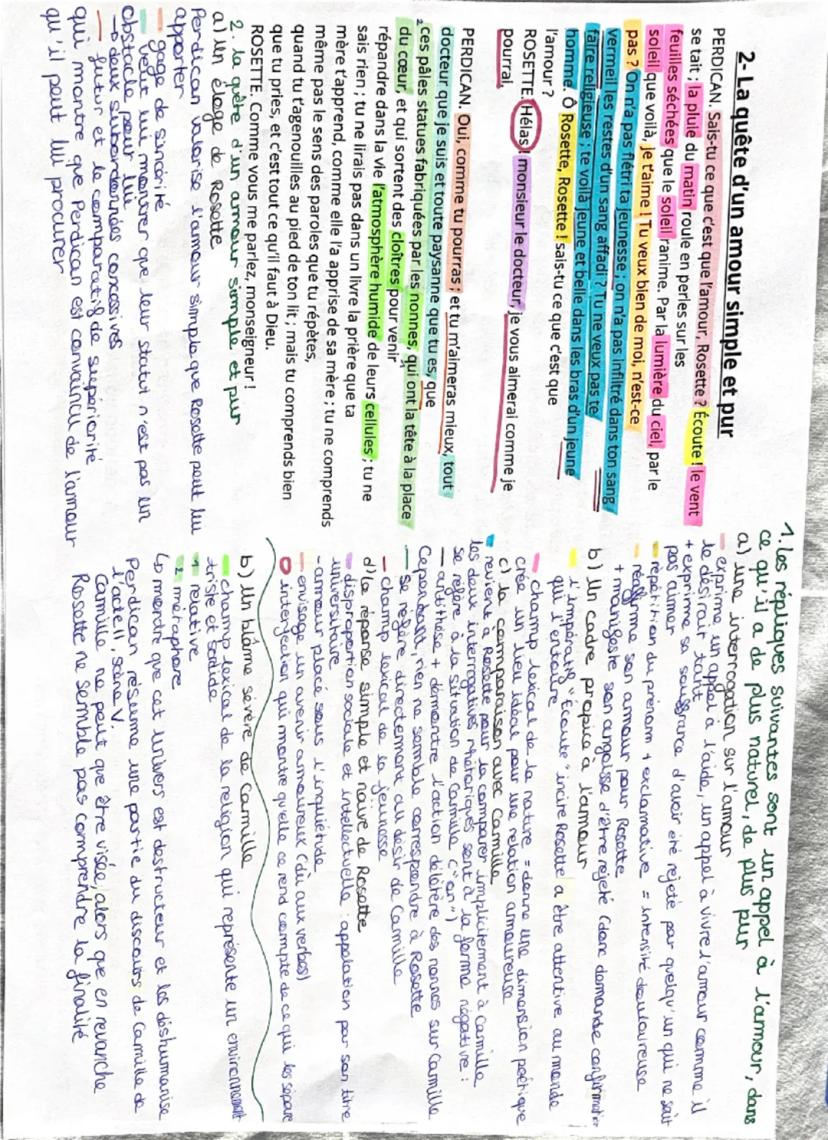 2- La quête d'un amour simple et pur
PERDICAN. Sais-tu ce que c'est que l'amour, Rosette ? Écoute ! le vent
se tait ; la pluie du matin roule en perles sur les
feuilles séchées que le soleil ranime. Par la lumière du ciel, par le
soleil que voilà, je t'aime ! Tu veux bien de moi, n'est-ce
pas ? On n'a pas flétri ta jeunesse ; on n'a pas infiltré dans ton sang
vermeil les restes d'un sang affadi ? Tu ne veux pas te
faire religieuse ; te voilà jeune et belle dans les bras d'un jeune
homme. Ô Rosette, Rosette ! sais-tu ce que c'est que
l'amour ?
ROSETTE. Hélas ! monsieur le docteur, je vous aimerai comme je
pourrai.
PERDICAN. Oui, comme tu pourras ; et tu m'aimeras mieux, tout
docteur que je suis et toute paysanne que tu es, que
2 ces pâles statues fabriquées par les nonnes, qui ont la tête à la place
du cœur, et qui sortent des cloîtres pour venir
répandre dans la vie l'atmosphère humide de leurs cellules ; tu ne
sais rien ; tu ne lirais pas dans un livre la prière que ta
mère t'apprend, comme elle l'a apprise de sa mère ; tu ne comprends
même pas le sens des paroles que tu répètes,
quand tu t'agenouilles au pied de ton lit ; mais tu comprends bien
que tu pries, et c'est tout ce qu'il faut à Dieu.
ROSETTE. Comme vous me parlez, monseigneur !
2. la quête d'un amour simple et pur
a) Un éloge de Rosette
Perdican valorise l'amour simple que Rosette peut lui
apporter
gage de sincérité
veut lui montrer que leur statut n'est pas un
obstacle pour lui
→ deux subordonnées concessives
futur et le comparatif de supériorité
qui montre que Perdican est convaincu de l'amour
qu'il peut lui procurer
1. les répliques suivantes sont un appel à l'amour, dans
ce qu'il a de plus naturel, de plus pur
a) une interrogation sur l'amour
exprime un appel à l'aide, un appel à vivre l'amour comme il
le désirait tant
+ exprime sa souffrance d'avoir été rejeté par quelqu'un qui ne sait
pas aimer
répétition du prénom + exclamative = intensité douloureuse
réaffirme son amour pour Rosette
+ manifeste son angoisse d'être rejeté (donc demande confirmation)
b) Un cadre propice à l'amour
l'impératif "Ecoute" incite Rosette à être attentive au monde
qui l'entoure
champ lexical de la nature = donne une dimension poétique
crée un lieu idéal pour une relation amoureuse
c) la comparaison avec Camille
revient à Rosette pour la comparer implicitement à Camille
les deux interrogatives rhétoriques sont à la forme négative :
se réfère à la situation de Camille ("on")
antithèse + démontre l'action délétère des nonnes sur Camille
Cependant, rien ne semble correspondre à Rosette
se réfère directement au désir de Camille
champ lexical de la jeunesse
d) la réponse simple et naïve de Rosette
disproportion sociale et intellectuelle : appelation par son titre
universitaire
- amour placé sous l'inquiétude
envisage un avenir amoureux (dû aux verbes)
interjection qui montre qu'elle se rend compte de ce qui les sépare
b) Un blâme sévère de Camille
champ lexical de la religion qui représente un environnement
triste et sordide
1 relative
2 métaphore
↳ montre que cet univers est destructeur et les déshumanise
Perdican résume une partie du discours de Camille de
l'acte II, scène V.
Camille ne peut que être visée, alors que en revanche
Rosette ne semble pas comprendre la finalité